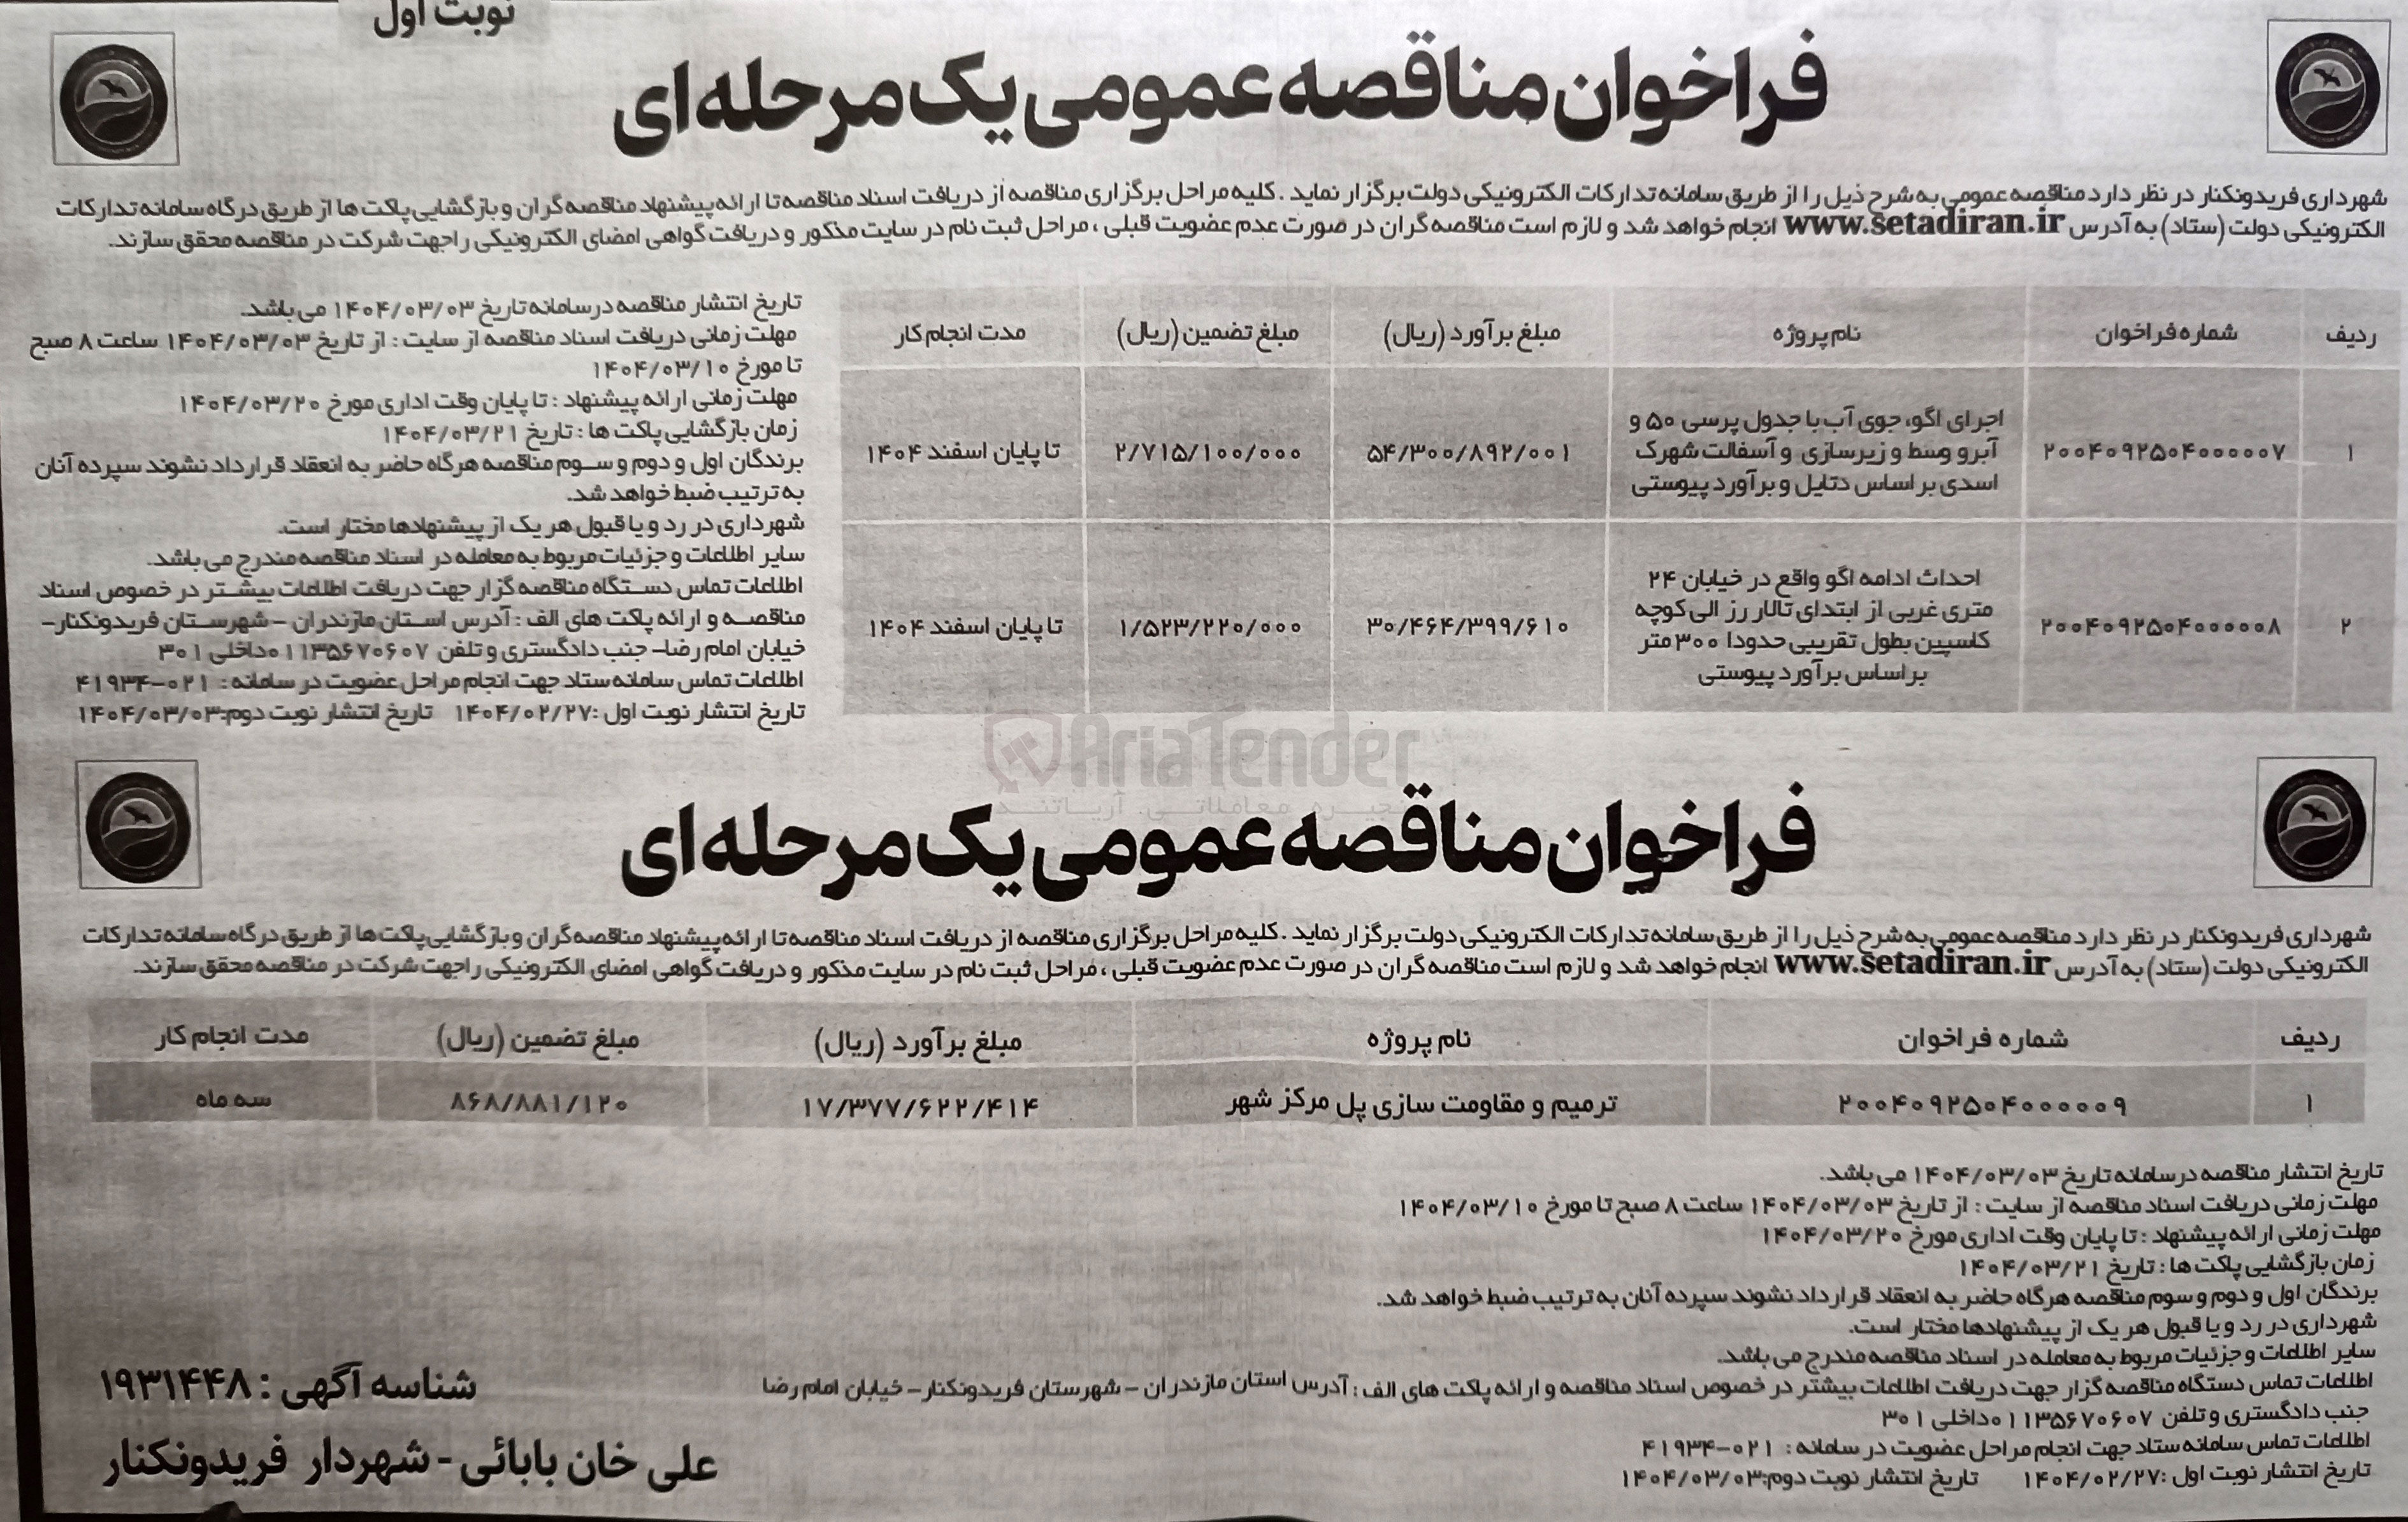 نوبت اول
فراخوان مناقصه عمومی یک مرحله ای
شهرداری فریدونکنار در نظر دارد مناقصه عمومی به شرح ذیل را از طریق سامانه تدارکات الکترونیکی دولت برگزار نماید . کلیه مراحل برگزاری مناقصه از دریافت اسناد مناقصه تا ارائه پیشنهاد مناقصه گران و بازگشایی پاکت ها از طریق درگاه سامانه تدارکات
الکترونیکی دولت (ستاد) به آدرس www.setadiran.ir انجام خواهد شد و لازم است مناقصه گران در صورت عدم عضویت قبلی ، مراحل ثبت نام در سایت مذکور و دریافت گواهی امضای الکترونیکی را جهت شرکت در مناقصه محقق سازند.
ردیف شماره فراخوان نام پروژه مبلغ برآورد (ریال) مبلغ تضمین (ریال) مدت انجام کار
۱ ۲۰۰۴۰۹۲۵۰۴۰۰۰۰۰۷ اجرای اگو، جوی آب با جدول پرسی ۵۰ و
آبرو وسط و زیرسازی و آسفالت شهرک ۵۴/۳۰۰/۸۹۲/۰۰۱ ۲/۷۱۵/۱۰۰/۰۰۰ تا پایان اسفند ۱۴۰۴
اسدی بر اساس دتایل و برآورد پیوستی
۲ ۲۰۰۴۰۹۲۵۰۴۰۰۰۰۰۸ احداث ادامه اگو واقع در خیابان ۲۴
متری غربی از ابتدای تالار رز الی کوچه ۳۰/۴۶۴/۳۹۹/۶۱۰ ۱/۵۲۳/۲۲۰/۰۰۰ تا پایان اسفند ۱۴۰۴
کاسپین بطول تقریبی حدودا ۳۰۰ متر
بر اساس برآورد پیوستی
تاریخ انتشار مناقصه در سامانه تاریخ ۱۴۰۴/۰۳/۰۳ می باشد.
مهلت زمانی دریافت اسناد مناقصه از سایت : از تاریخ ۱۴۰۴/۰۳/۰۳ ساعت ۸ صبح
تا مورخ ۱۴۰۴/۰۳/۱۰
مهلت زمانی ارائه پیشنهاد : تا پایان وقت اداری مورخ ۱۴۰۴/۰۳/۲۰
زمان بازگشایی پاکت ها : تاریخ ۱۴۰۴/۰۳/۲۱
برندگان اول و دوم و سوم مناقصه هرگاه حاضر به انعقاد قرارداد نشوند سپرده آنان
به ترتیب ضبط خواهد شد.
شهرداری در رد و یا قبول هر یک از پیشنهادها مختار است.
سایر اطلاعات و جزئیات مربوط به معامله در اسناد مناقصه مندرج می باشد.
اطلاعات تماس دستگاه مناقصه گزار جهت دریافت اطلاعات بیشتر در خصوص اسناد
مناقصه و ارائه پاکت های الف : آدرس استان مازندران - شهرستان فریدونکنار-
خیابان امام رضا- جنب دادگستری و تلفن ۰۱۱۳۵۶۷۰۶۰۷ داخلی ۳۰۱
اطلاعات تماس سامانه ستاد جهت انجام مراحل عضویت در سامانه : ۰۲۱-۴۱۹۳۴
تاریخ انتشار نوبت اول :۱۴۰۴/۰۲/۲۷ تاریخ انتشار نوبت دوم:۱۴۰۴/۰۳/۰۳
AriaTender
فراخوان مناقصه عمومی یک مرحله ای
شهرداری فریدونکنار در نظر دارد مناقصه عمومی به شرح ذیل را از طریق سامانه تدارکات الکترونیکی دولت برگزار نماید . کلیه مراحل برگزاری مناقصه از دریافت اسناد مناقصه تا ارائه پیشنهاد مناقصه گران و بازگشایی پاکت ها از طریق درگاه سامانه تدارکات
الکترونیکی دولت (ستاد) به آدرس www.setadiran.ir انجام خواهد شد و لازم است مناقصه گران در صورت عدم عضویت قبلی ، مراحل ثبت نام در سایت مذکور و دریافت گواهی امضای الکترونیکی را جهت شرکت در مناقصه محقق سازند.
ردیف شماره فراخوان نام پروژه مبلغ برآورد (ریال) مبلغ تضمین (ریال) مدت انجام کار
۱ ۲۰۰۴۰۹۲۵۰۴۰۰۰۰۰۹ ترمیم و مقاومت سازی پل مرکز شهر ۱۷/۳۷۷/۶۲۲/۴۱۴ ۸۶۸/۸۸۱/۱۲۰ سه ماه
تاریخ انتشار مناقصه در سامانه تاریخ ۱۴۰۴/۰۳/۰۳ می باشد.
مهلت زمانی دریافت اسناد مناقصه از سایت : از تاریخ ۱۴۰۴/۰۳/۰۳ ساعت ۸ صبح تا مورخ ۱۴۰۴/۰۳/۱۰
مهلت زمانی ارائه پیشنهاد : تا پایان وقت اداری مورخ ۱۴۰۴/۰۳/۲۰
زمان بازگشایی پاکت ها : تاریخ ۱۴۰۴/۰۳/۲۱
برندگان اول و دوم و سوم مناقصه هرگاه حاضر به انعقاد قرارداد نشوند سپرده آنان به ترتیب ضبط خواهد شد.
شهرداری در رد و یا قبول هر یک از پیشنهادها مختار است.
سایر اطلاعات و جزئیات مربوط به معامله در اسناد مناقصه مندرج می باشد.
اطلاعات تماس دستگاه مناقصه گزار جهت دریافت اطلاعات بیشتر در خصوص اسناد مناقصه و ارائه پاکت های الف : آدرس استان مازندران - شهرستان فریدونکنار- خیابان امام رضا
جنب دادگستری و تلفن ۰۱۱۳۵۶۷۰۶۰۷ داخلی ۳۰۱
اطلاعات تماس سامانه ستاد جهت انجام مراحل عضویت در سامانه : ۰۲۱-۴۱۹۳۴
تاریخ انتشار نوبت اول :۱۴۰۴/۰۲/۲۷ تاریخ انتشار نوبت دوم:۱۴۰۴/۰۳/۰۳
شناسه آگهی : ۱۹۳۱۴۴۸
علی خان بابائی - شهردار فریدونکنار